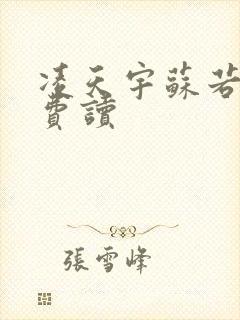 凌天宇蘇若
費讀
張雪峰